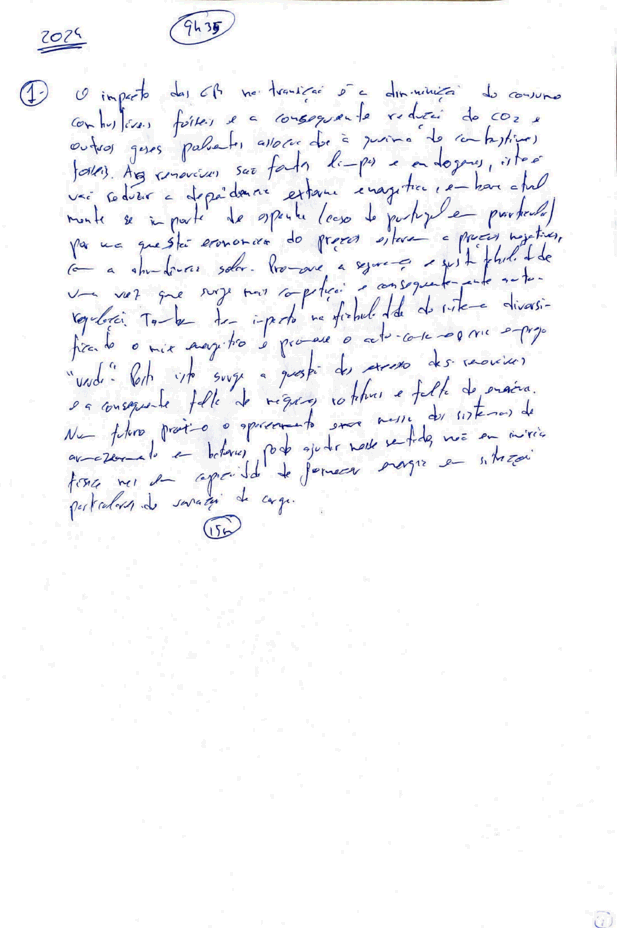 2024
9h35
1- O impacto das CR na transiçai é a diminuiçai do consumo
combustiveis fosseis e a consequente reduçai do CO2 e
outros gases poluentes associados à queima de combustiveis
fosseis. As renováveis sao fontes limpas e endogenas, isto é
vai reduzir a dependencia externa energetica, embora atual
mente se importe de espanha (caso de portugal em particular)
por uma questai economica do preços estarem a preços negativos,
com a abundancia solar. Promove a segurança e sustentabilidade
uma vez que surge mais competiçai e consequentemente auto-
regulaçai. Tambem tem impacto na fiabilidade do sistema diversi-
ficando o mix energetico e promove o auto-consumo e emprego
"verde". Posto isto surge a questai dos excesso das renováveis
e a consequente falta de máquinas rotativas e falta de energia.
Num futuro proximo o aparecimento em massa dos sistemas de
armazenamento em baterias, pode ajudar nesse sentido, nao em inércia
fisica mas em capacidade de fornecer energia em situaçoi
particulares de variaçai de carga.
15m